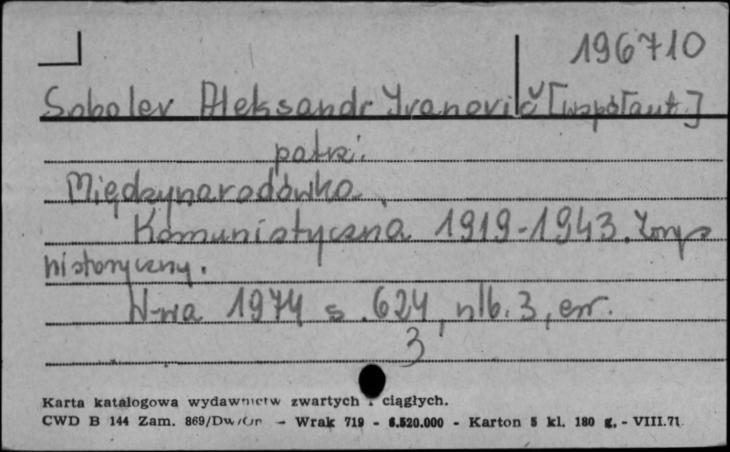 196710
Sobolev Aleksandr Ivanovič [współaut.]
patrz:
Międzynarodówka
Komunistyczna 1919-1943. Zarys
historyczny.
W-wa 1974 s. 624, nlb. 3, err.
3
Karta katalogowa wydawnictw zwartych i ciągłych.
CWD B 144 Zam. 869/Dw/ - Wrak 719 - 6.520.000 - Karton 5 kl. 180 g. - VIII.71